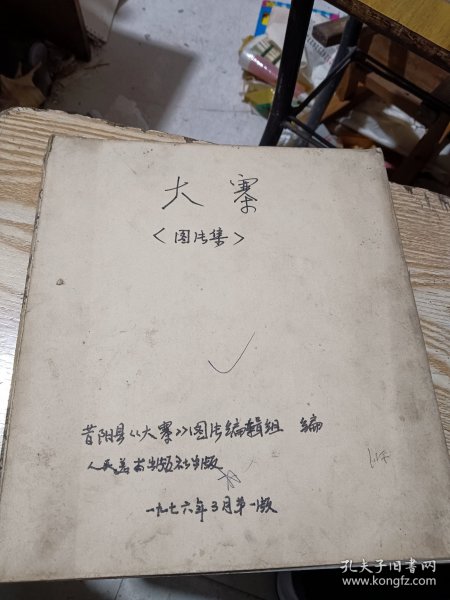 大寨
<图片集>
昔阳县《大寨》图片编辑组 编
人民美术出版社出版
一九七六年3月第一版
孔夫子旧书网
www.kongfz.com